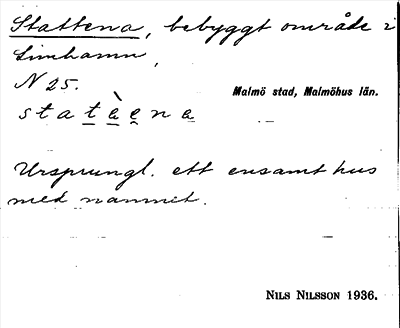 Stattena, bebyggt område i
Limhamn,
N 25.
Malmö stad, Malmöhus län.
statàena
Ursprungl. ett ensamt hus
med namnet.
NILS NILSSON 1936.